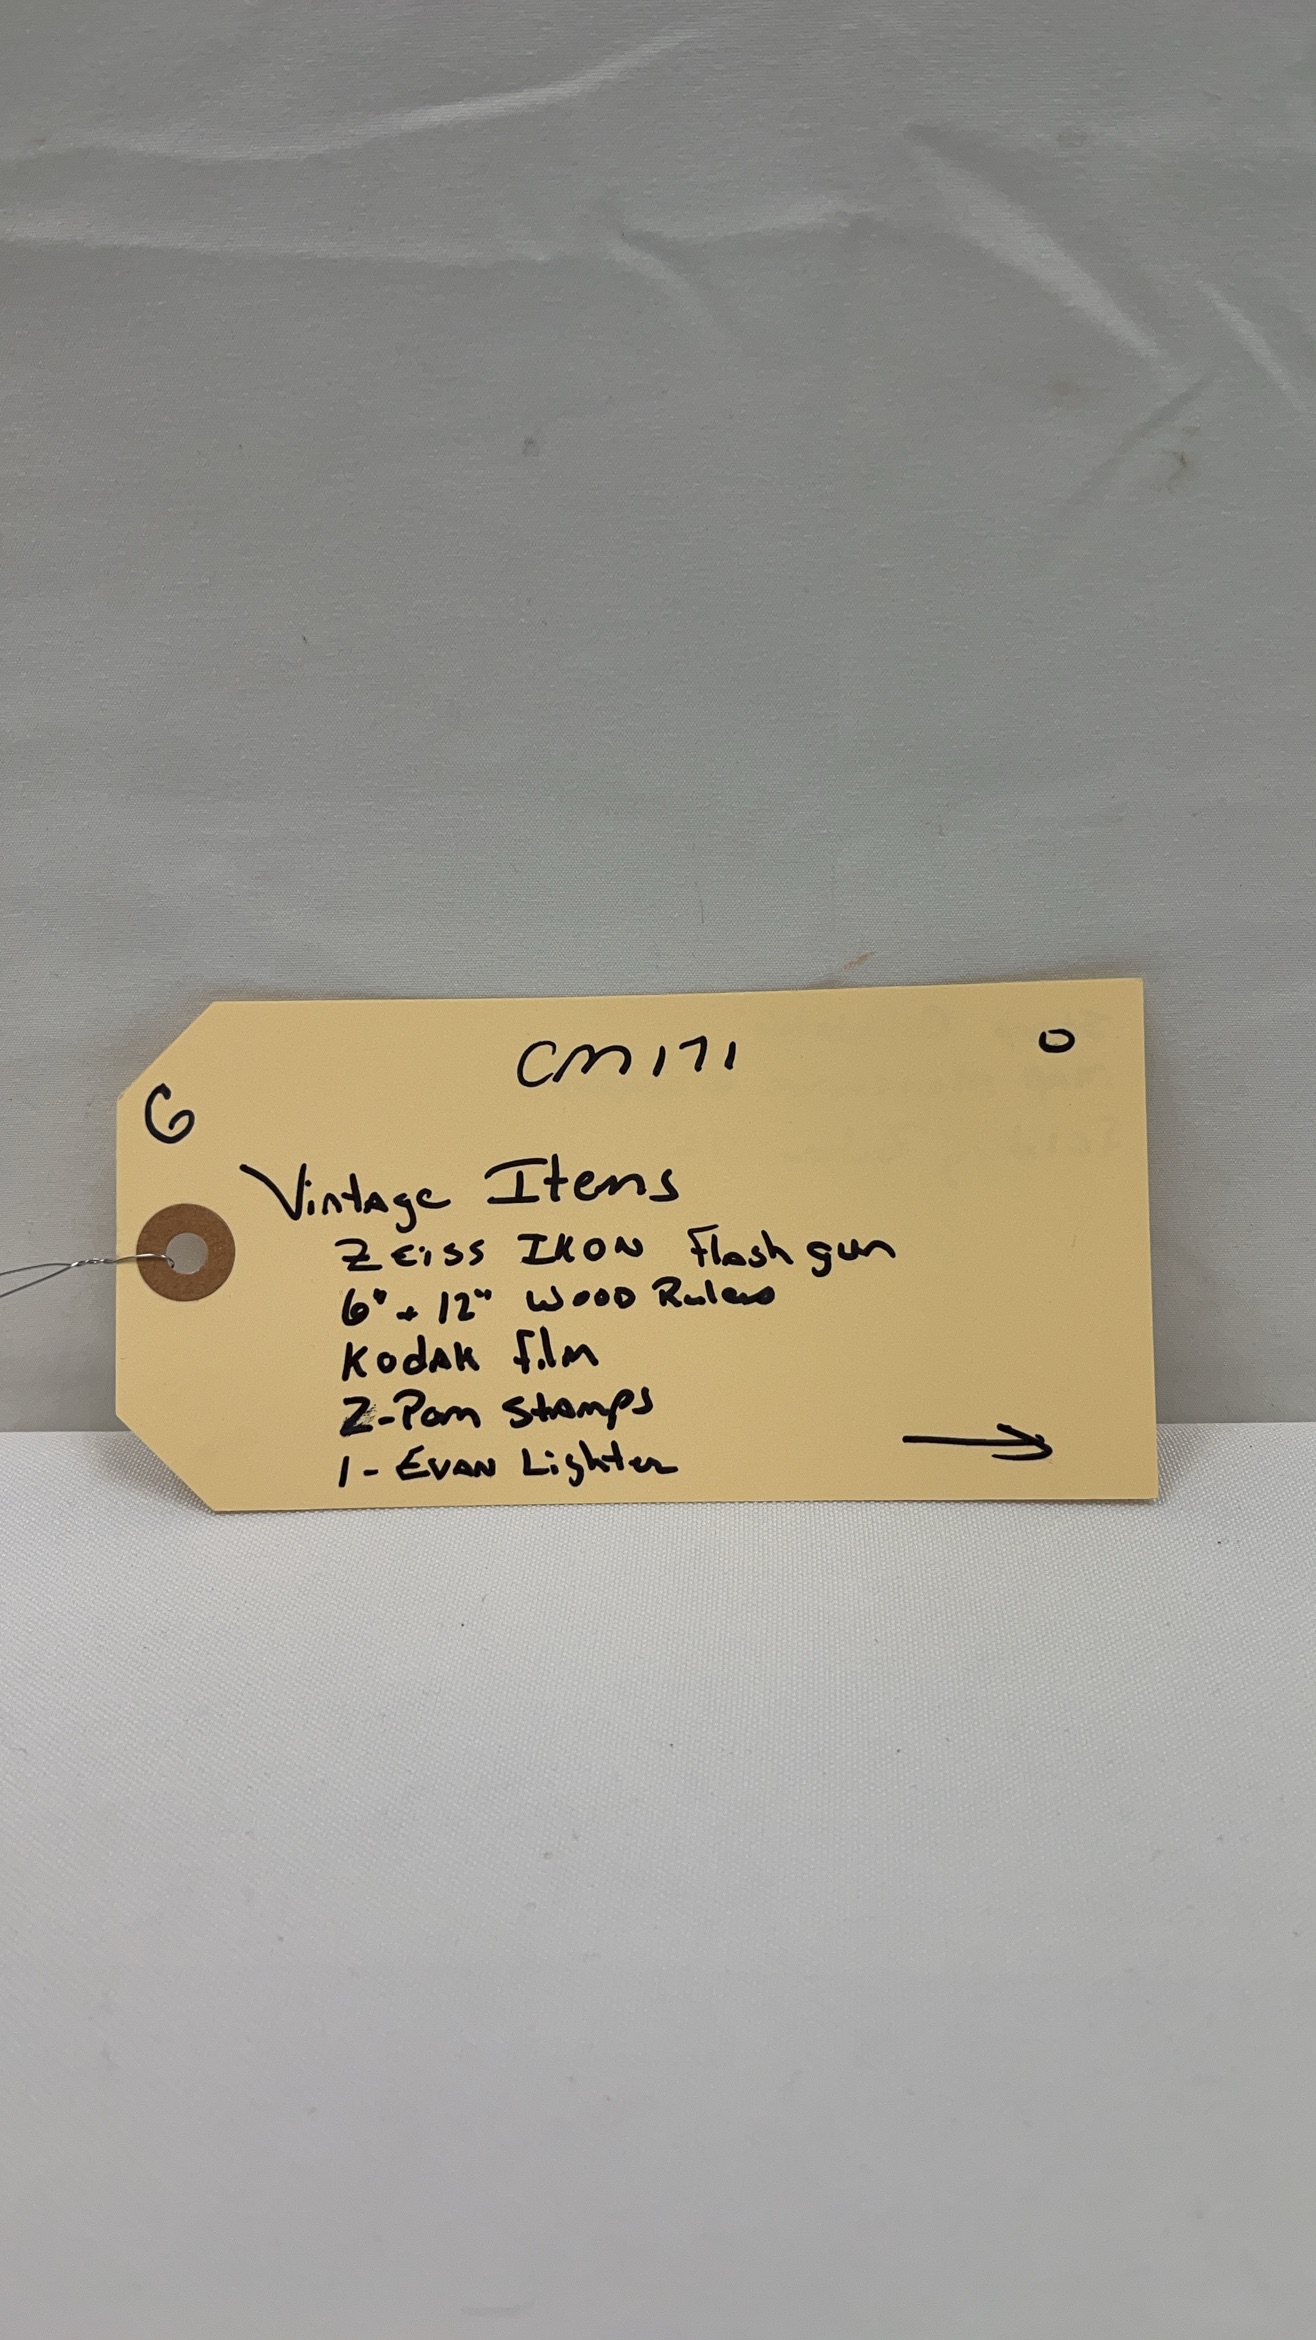 CM171
O
G
Vintage Items
Zeiss IKON Flash gun
6" + 12" Wood Rulers
Kodak film
2-Pam Stamps
1- EVAN Lighter